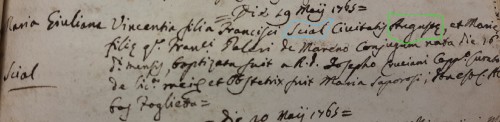 Die 19 Maij 1765=
Maria Giuliana Vincentia filia Francisci Scial Civitatis Augustę, et Marię
filię q. Franci Paleri de Moreno Conjugum nata die 16
d. mensis, baptizata fuit a R. D. Josepho Cruciani Capp. Curato
Scial
de lic. meis et Obstetrix fuit Maria Saporosi;
Foglietta=
Die 20 Maij 1765=